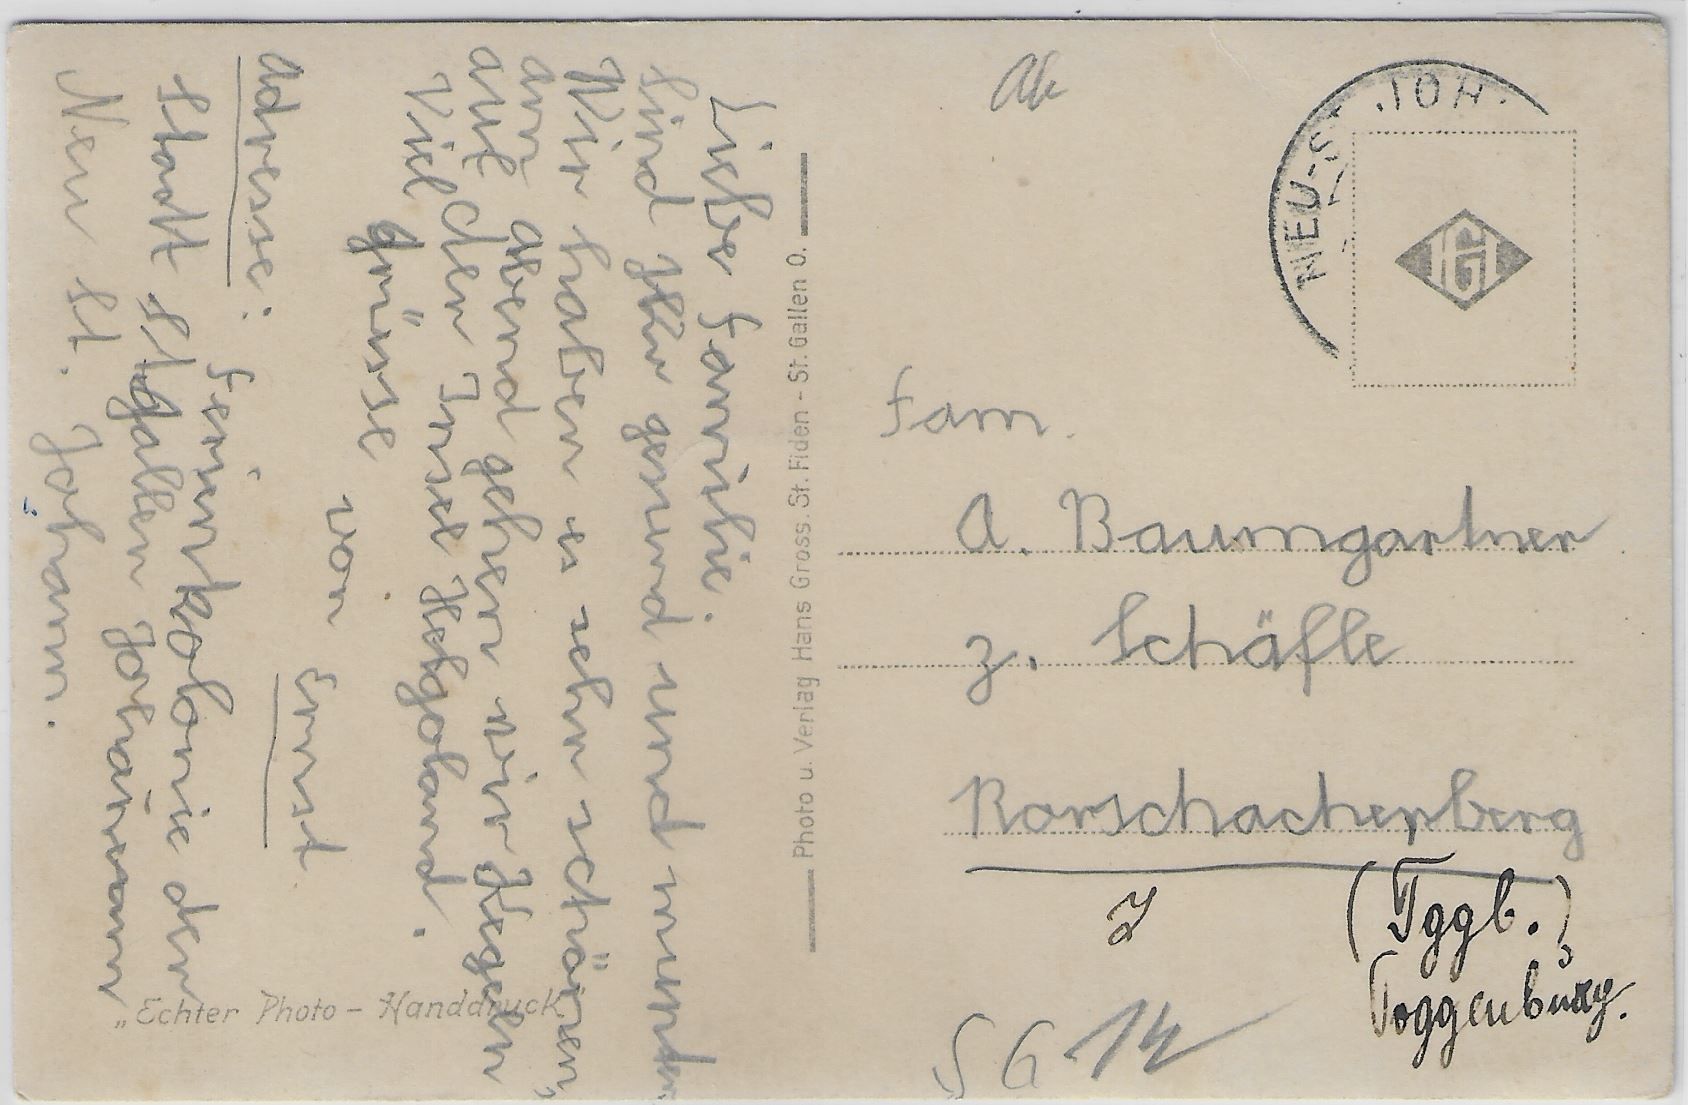 Liebe Familie.
Sind Ihr gesund und munter.
Wir haben es sehr schönen,
am abend gehen wir
auf den Insel Helgoland.
Viel grüsse
von Ernst
adresse: Ferinkolonie der
Stadt St gallen
Neu St. Johann.
Photo u. Verlag Hans Gross. St. Fiden - St. Gallen O.
„Echter Photo – Handdruck"
Ab
NEU-ST. JOH.
G
Fam.
A. Baumgartner
z. Schäfle
Rorschacherberg
(Tggb.)
Toggenburg.
SG